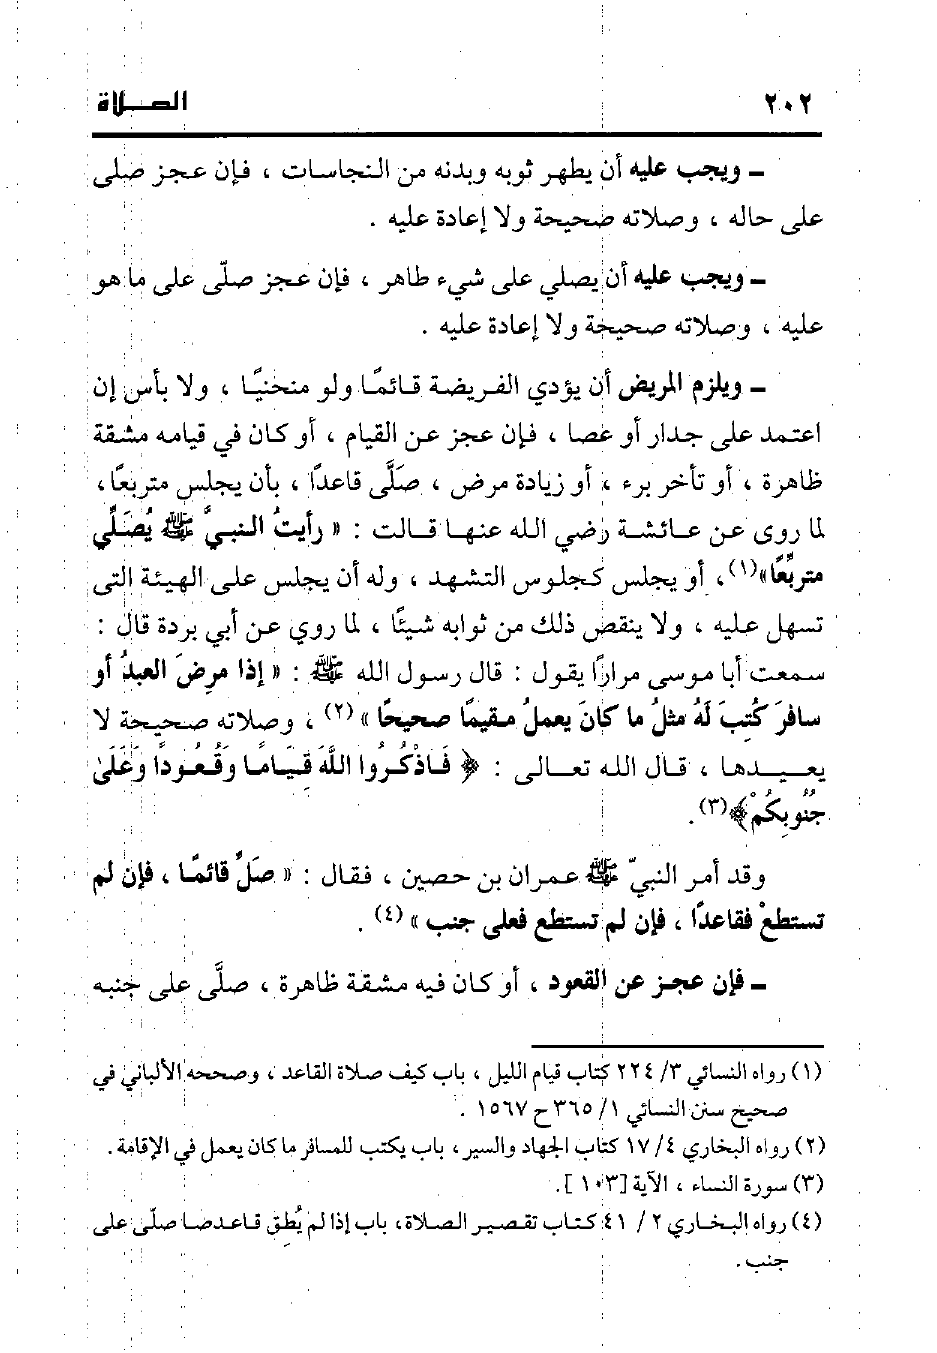 ٢٠٢
الصلاة
ـ ويجب عليه أن يطهر ثوبه وبدنه من النجاسات ، فإن عجز صلى
على حاله ، وصلاته صحيحة ولا إعادة عليه .
ـ ويجب عليه أن يصلي على شيء طاهر ، فإن عجز صلّى على ما هو
عليه ، وصلاته صحيحة ولا إعادة عليه .
ـ ويلزم المريض أن يؤدي الفريضة قائمًا ولو منحنيًا ، ولا بأس إن
اعتمد على جدار أو عصا ، فإن عجز عن القيام ، أو كان في قيامه مشقة
ظاهرة ، أو تأخر برء ، أو زيادة مرض ، صَلَّى قاعدًا ، بأن يجلس متربعًا،
لما روى عن عائشة رضي الله عنها قالت : « رأيتُ النبيَّ ﷺ يُصَلِّي
متربِّعًا»(١)، أو يجلس كجلوس التشهد ، وله أن يجلس على الهيئة التى
تسهل عليه ، ولا ينقص ذلك من ثوابه شيئًا ، لما روي عن أبي بردة قال :
سمعت أبا موسى مرارًا يقول : قال رسول الله ﷺ : « إذا مرِضَ العبدُ أو
سافرَ كُتِبَ لَهُ مثلُ ما كانَ يعملُ مقيمًا صحيحًا » (٢) ، وصلاته صحيحة لا
يعيدها ، قال الله تعالى : ﴿ فَاذْكُرُوا اللَّهَ قِيَامًا وَقُعُودًا وَعَلَىٰ
جُنُوبِكُمْ﴾(٣).
وقد أمر النبيّ ﷺ عمران بن حصين ، فقال : « صَلِّ قائمًا ، فإن لم
تستطعْ فقاعدًا ، فإن لم تستطع فعلى جنب » (٤) .
ـ فإن عجز عن القعود ، أو كان فيه مشقة ظاهرة ، صلَّى على جنبه
(١) رواه النسائي ٣/ ٢٢٤ كتاب قيام الليل ، باب كيف صلاة القاعد ، وصححه الألباني في
صحيح سنن النسائي ١/ ٣٦٥ ح ١٥٦٧ .
(٢) رواه البخاري ٤/ ١٧ كتاب الجهاد والسير ، باب يكتب للمسافر ما كان يعمل في الإقامة .
(٣) سورة النساء ، الآية [١٠٣].
(٤) رواه البخاري ٢ / ٤١ كتاب تقصير الصلاة، باب إذا لم يُطِق قاعدضا صلّى على
جنب .